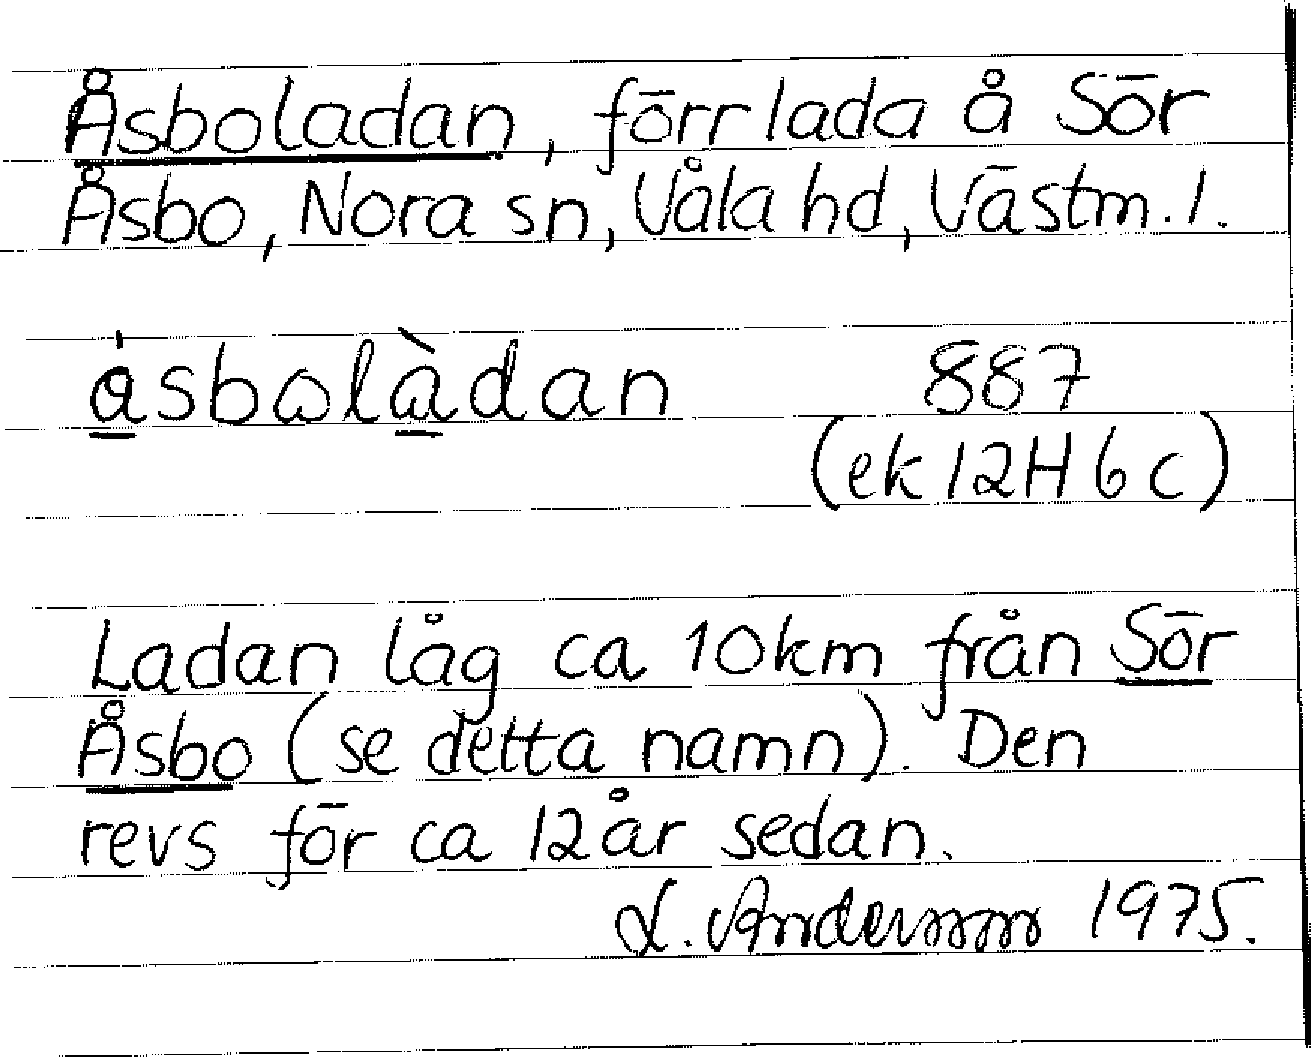 Åsboladan, förr lada å Sör
Åsbo, Nora sn, Våla hd, Västm. l.
ásbolàdan 887
(ek 12H 6c)
Ladan låg ca 10km från Sör
Åsbo (se detta namn). Den
revs för ca 12 år sedan.
L. Andersson 1975.